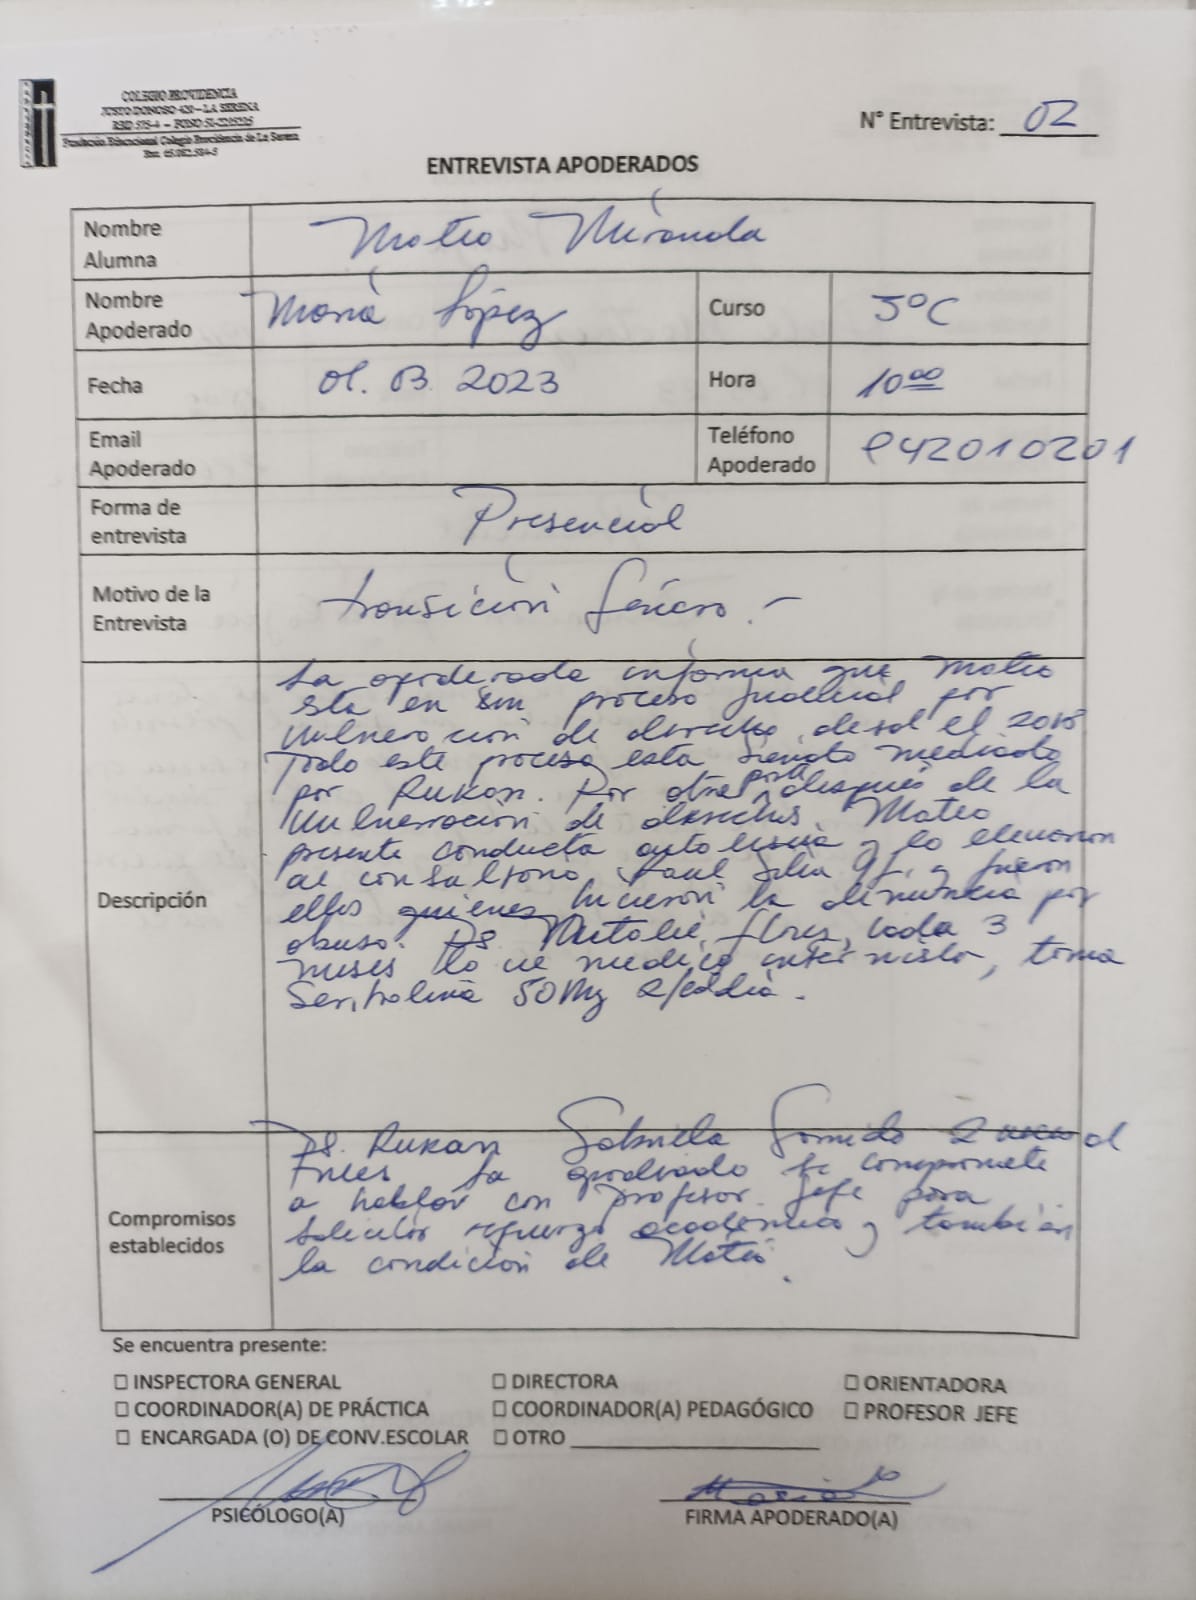 COLEGIO PROVIDENCIA
JUSTO DONOSO 420 – LA SERENA
RBD 575-4 – FONO 51-2215215
Fundación Educacional Colegio Providencia de La Serena
N° Entrevista: 02
ENTREVISTA APODERADOS
Nombre Alumna Mateo Miranda
Nombre Apoderado María López
Curso 5°C
Fecha 01. 03. 2023
Hora 10⁰⁰
Email Apoderado
Teléfono Apoderado 942010201
Forma de entrevista Presencial
Motivo de la Entrevista transición Género.-
Descripción
La apoderada informa que Mateo
está en un proceso judicial por
vulneración de derecho, desde el 2018
Todo este proceso esta siendo mediado
por Rukan. Por otra parte después de la
vulneración de derechos Mateo
presenta conducta autolesiva y lo
al consultorio Raul Silva H. y fueron
ellos quienes hicieron la denuncia por
abuso. Ps. Natalie Flores, cada 3
meses lo ve medico internista, toma
Sertralina 50Mg
Compromisos establecidos
Ps. Rukan Gabriela al
mes La apoderado se compromete
a hablar con profesor. Jefe para
solicitar refuerzo académico y también
la condición de Mateo.
Se encuentra presente:
☐ INSPECTORA GENERAL ☐ DIRECTORA ☐ ORIENTADORA
☐ COORDINADOR(A) DE PRÁCTICA ☐ COORDINADOR(A) PEDAGÓGICO ☐ PROFESOR JEFE
☐ ENCARGADA (O) DE CONV.ESCOLAR ☐ OTRO
María
PSICÓLOGO(A) FIRMA APODERADO(A)